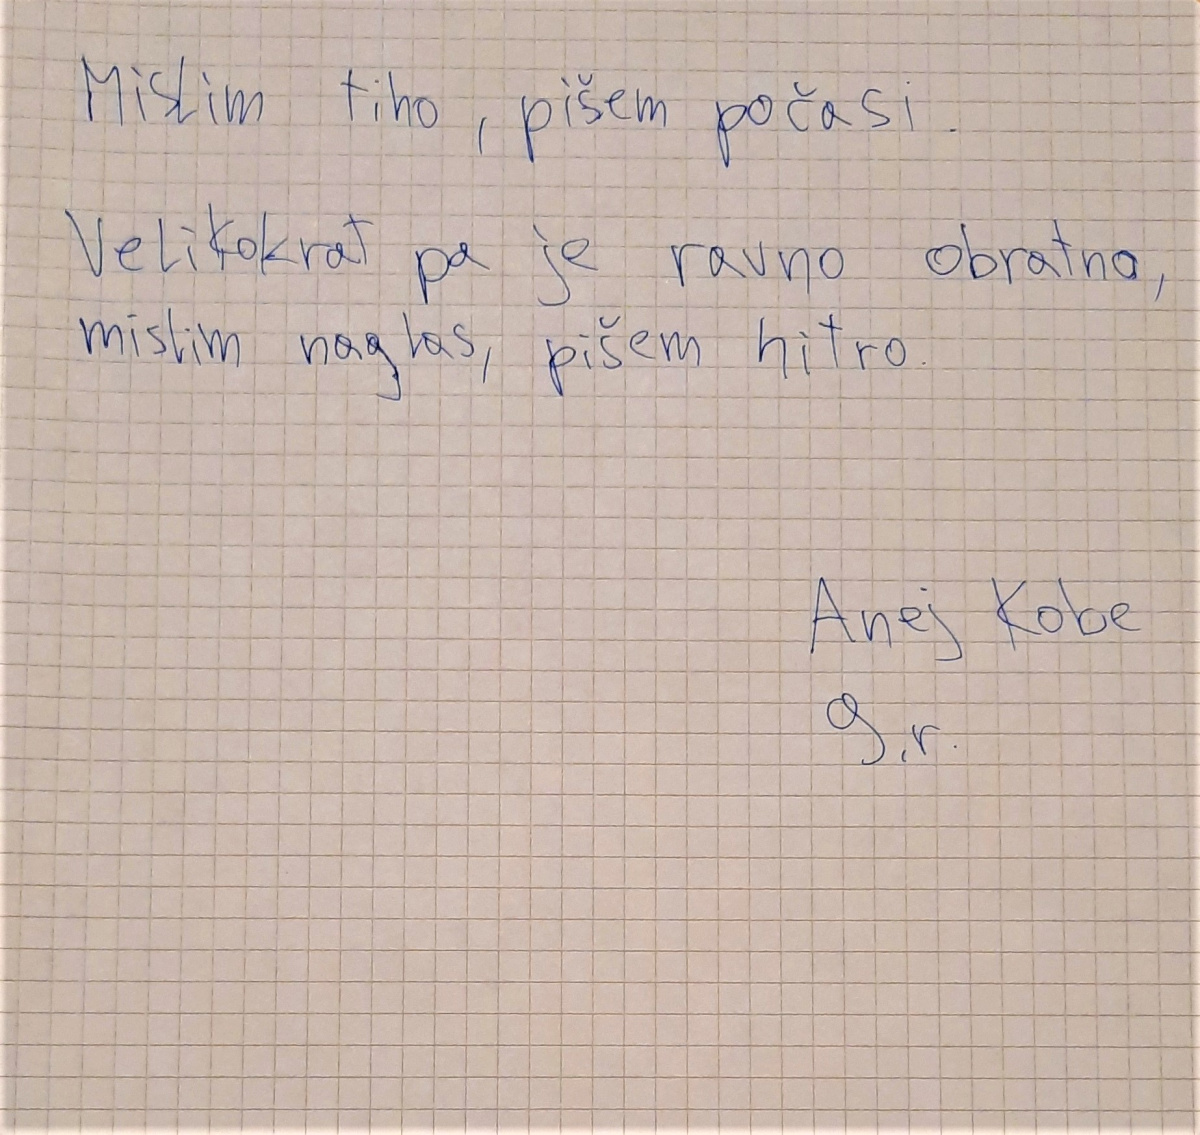 Mislim tiho, pišem počasi.
Velikokrat pa je ravno obratno,
mislim naglas, pišem hitro.
Anej Kobe
9.r.